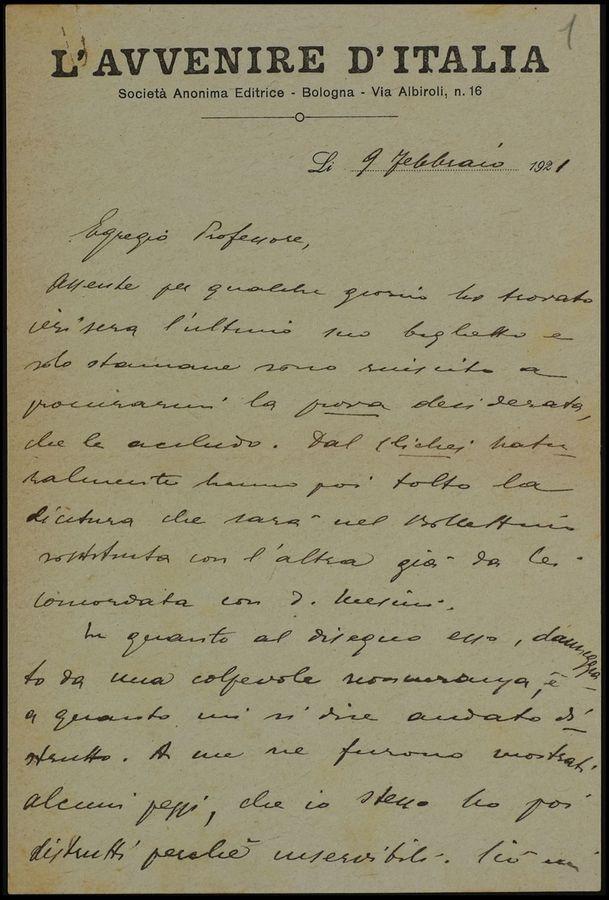 1
L'AVVENIRE D'ITALIA
Società Anonima Editrice - Bologna - Via Albiroli, n. 16
Li 9 Febbraio 1921
Egregio Professore,
Assente per qualche giorno ho trovato
ieri sera l'ultimo suo biglietto e
solo stamane sono riuscito a
procurarmi la prova desiderata,
che le accludo. Dal clichej natu
ralmente hanno poi tolto la
dicitura che sarà nel Bollettino
sostituita con l'altra già da lei
concordata con D. Mesini.
In quanto al disegno esso, danneggia
to da una colpevole noncuranza, è
a quanto mi si dice andato di
strutto. A me ne furono mostrati
alcuni pezzi, che io stesso ho poi
distrutti perchè inservibili. Ciò mi